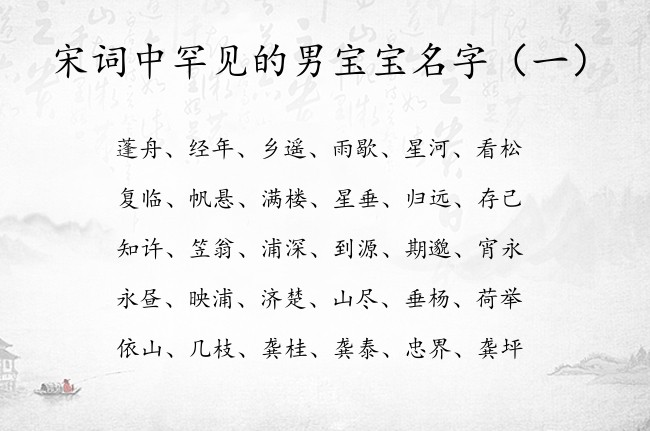 宋词中罕见的男宝宝名字（一）
蓬舟、经年、乡遥、雨歇、星河、看松
复临、帆悬、满楼、星垂、归远、存己
知许、笠翁、浦深、到源、期邈、宵永
永昼、映浦、济楚、山尽、垂杨、荷举
依山、几枝、龚桂、龚泰、忠界、龚坪